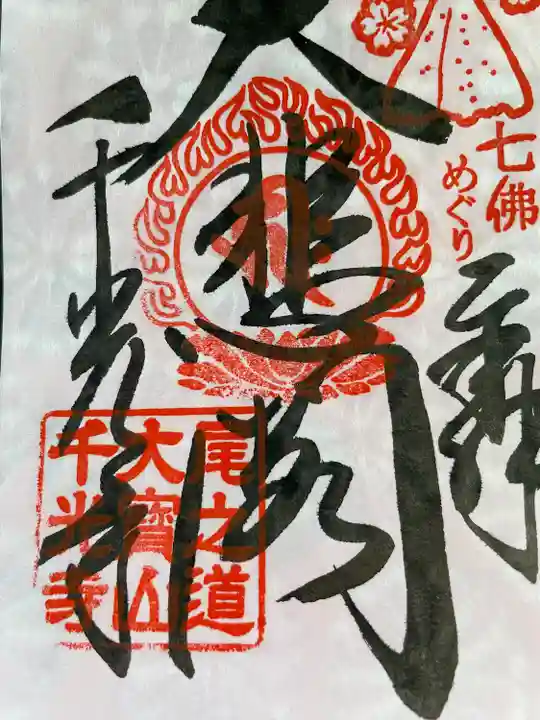 七佛
めぐり
奉拝
大悲閣
千光寺
尾之道
大寳山
千光寺